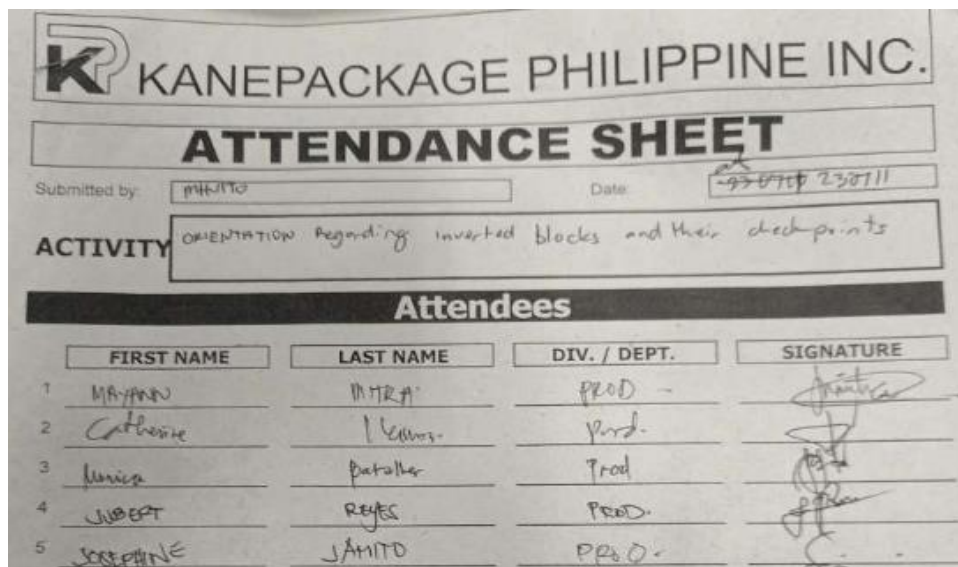 KP KANEPACKAGE PHILIPPINE INC.
ATTENDANCE SHEET
Submitted by: MINITO Date: 230711
ACTIVITY ORIENTATION Regarding inverted blocks and their checkpoints
Attendees
FIRST NAME LAST NAME DIV. / DEPT. SIGNATURE
1 MAYANN MITRA PROD
2 Catherine Prod.
3 Monica Prod
4 JUBERT REYES PROD.
5 JOSEPHINE JAMITO PROD.